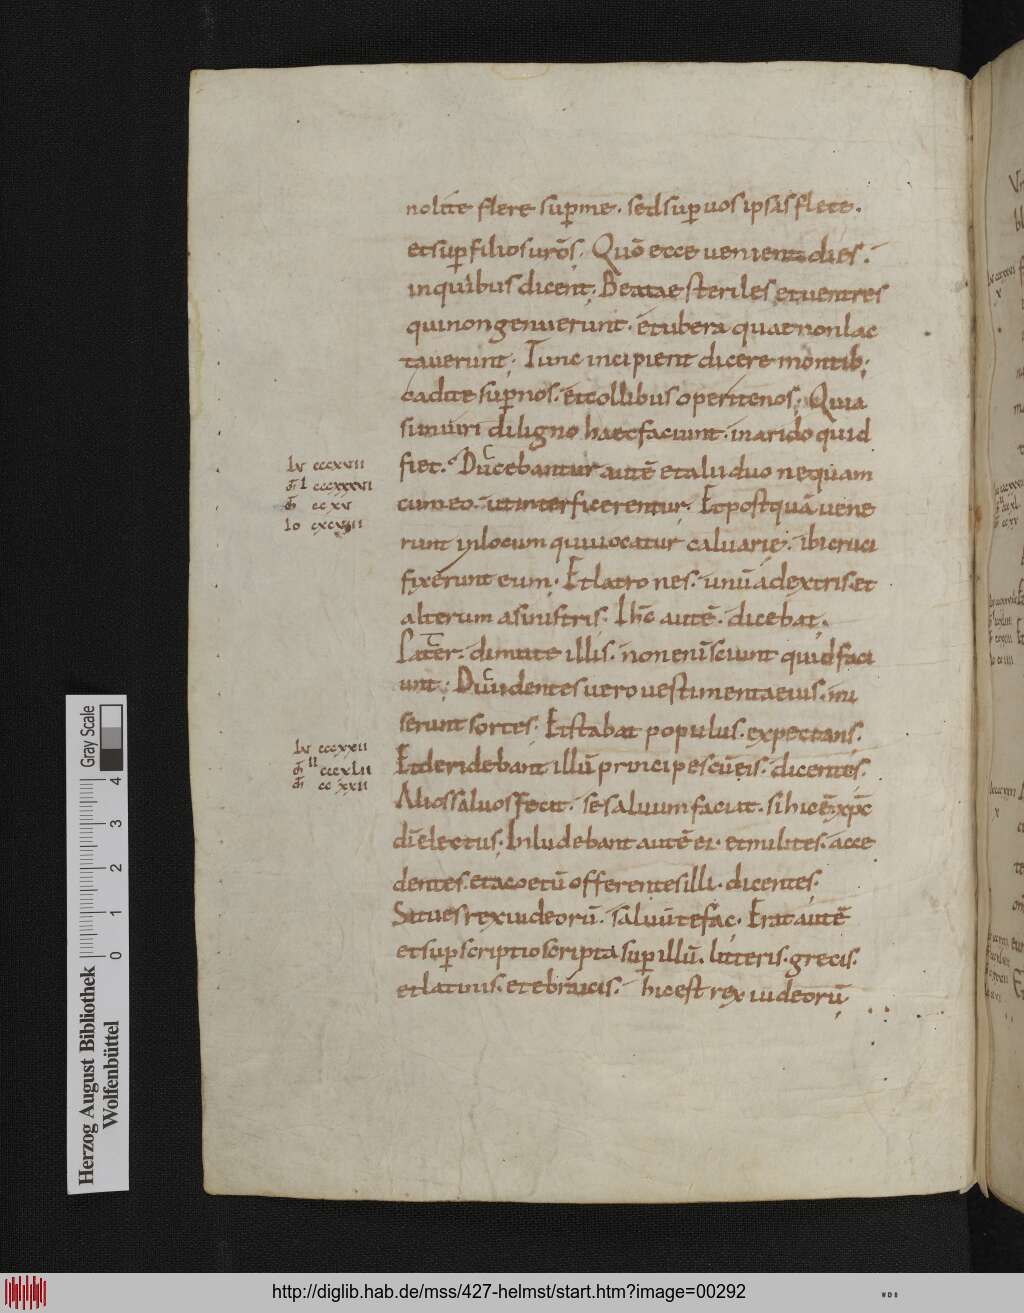 nolite flere sup me. sed sup uos ipsas flete.
et sup filios uros. Quō ecce uenient dies.
in quibus dicent. Beatae steriles et uentres
qui non genuerunt. et ubera quae non lac
tauerunt. Tunc incipient dicere montib;
cadite sup nos. et collibus operite nos. Quia
si in uiri di ligno haec faciunt. in arido quid
fiet. Ducebantur autē et alii duo nequam
cum eo. ut interficerentur. Et postquā uene
runt in locum qui uocatur caluarie. ibi cruci
fixerunt eum. Et latrones. unū a dextris. et
alterum a sinistris. Ihc autē. dicebat.
Pater. dimitte illis. non enī sciunt quid faci
unt. Diuidentes uero uestimenta eius. mi
serunt sortes. Et stabat populus. expectans.
Et deridebant illū principes cū eis. dicentes.
Alios saluos fecit. se saluum faciat. si hic ē xpc
di electus. Inludebant autē ei. et milites. acce
dentes. et acoetū offerentes illi. dicentes.
Si tu es rex iudeorū. saluū te fac. Erat autē
et sup scriptio scripta sup illū. litteris. grecis.
et latinis. et ebraicis. hic est rex iudeorū
lv cccxxvii
cccxxxvi
cc xv
io cxcviii
lv cccxxii
cccxlii
cc xxii
Gray Scale
4
3
2
1
0
Herzog August Bibliothek
Wolfenbüttel
http://diglib.hab.de/mss/427-helmst/start.htm?image=00292